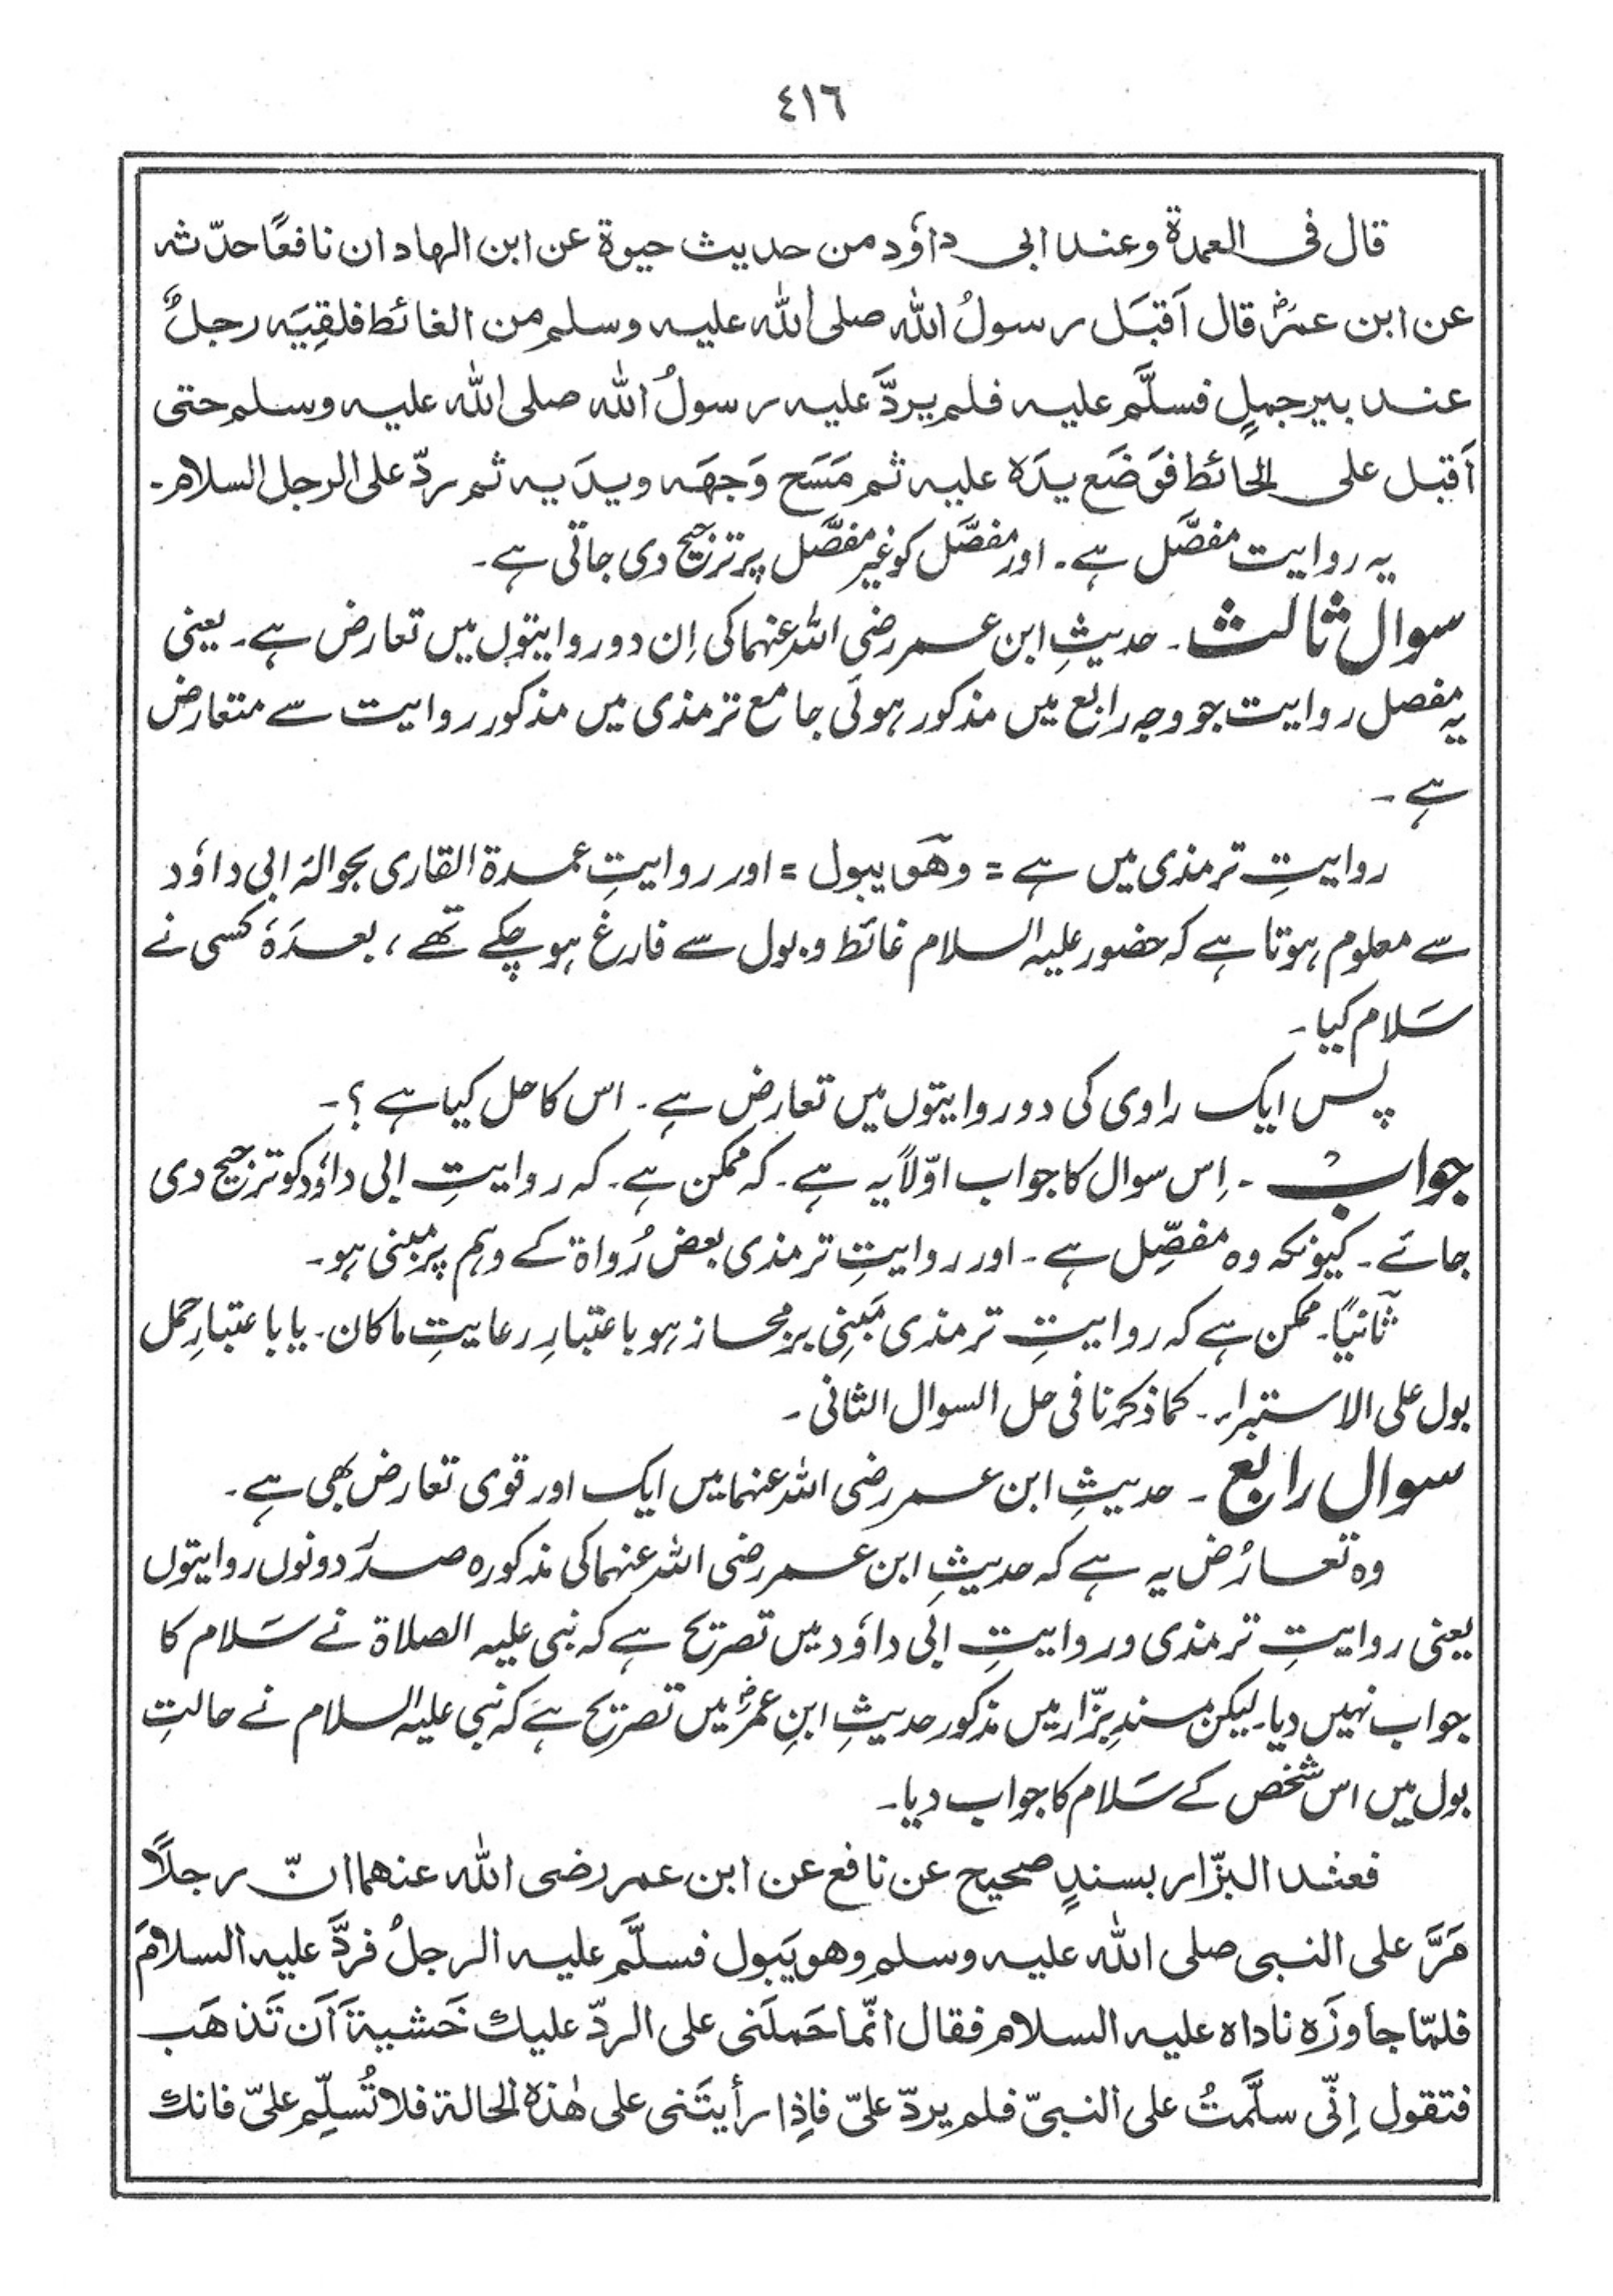 ٤١٦
قال فی العمدة وعند ابی داؤد من حدیث حیوة عن ابن الهاد ان نافعًا حدّثه
عن ابن عمرؓ قال اَقبَل رسولُ الله صلی الله علیه وسلم من الغائط فلقِیَه رجلٌ
عند بیر جملٍ فسلَّم علیه فلم یردَّ علیه رسولُ الله صلی الله علیه وسلم حتی
اَقبل علی الحائط فوَضَع یدَه علیه ثم مَسَح وَجهَه ویدَیه ثم ردّ علی الرجل السلام۔
یہ روایت مفصَّل ہے۔ اور مفصَّل کو غیر مفصَّل پر ترجیح دی جاتی ہے۔
سوال ثالث۔ حدیثِ ابن عمر رضی اللہ عنہما کی اِن دو روایتوں میں تعارض ہے۔ یعنی
یہ مفصل روایت جو وجہ رابع میں مذکور ہوئی جامع ترمذی میں مذکور روایت سے متعارض
ہے۔
روایتِ ترمذی میں ہے = وھو یبول = اور روایتِ عمدة القاری بحوالہ ابی داؤد
سے معلوم ہوتا ہے کہ حضور علیہ السلام غائط و بول سے فارغ ہو چکے تھے، بعدَہٗ کسی نے
سَلام کیا۔
پس ایک راوی کی دو روایتوں میں تعارض ہے۔ اس کا حل کیا ہے؟۔
جواب۔ اِس سوال کا جواب اوّلاً یہ ہے۔ کہ ممکن ہے۔ کہ روایتِ ابی داؤد کو ترجیح دی
جائے۔ کیونکہ وہ مفصِّل ہے۔ اور روایتِ ترمذی بعض رُواة کے وہم پر مبنی ہو۔
ثانیًا۔ ممکن ہے کہ روایتِ ترمذی مَبنِی بر مجاز ہو باعتبارِ رعایتِ ماکان۔ یا باعتبارِ حمل
بول علی الاستبراء۔ کما ذکرنا فی حل السوال الثانی۔
سوال رابع۔ حدیثِ ابن عمر رضی اللہ عنہما میں ایک اور قوی تعارض بھی ہے۔
وہ تعارُض یہ ہے کہ حدیثِ ابن عمر رضی اللہ عنہما کی مذکورہ صدَر دونوں روایتوں
یعنی روایتِ ترمذی و روایتِ ابی داؤد میں تصریح ہے کہ نبی علیہ الصلاة نے سَلام کا
جواب نہیں دیا۔ لیکن مسندِ بزّار میں مذکور حدیثِ ابنِ عمرؓ میں تصریح ہے کہ نبی علیہ السلام نے حالتِ
بول میں اس شخص کے سَلام کا جواب دیا۔
فعند البزّار بسندٍ صحیح عن نافع عن ابن عمر رضی الله عنهما انّ رجلًا
مَرَّ علی النبی صلی الله علیه وسلم وهو یَبول فسلَّم علیه الرجلُ فردَّ علیه السلامَ
فلمّا جاوزَه ناداه علیه السلام فقال انّما حَملَنی علی الردّ علیك خَشیةَ اَن تَذهَب
فتقول اِنّی سلَّمتُ علی النبیّ فلم یردّ علیّ فاِذا رأیتَنی علی هٰذه الحالة فلا تُسلِّم علیّ فانك